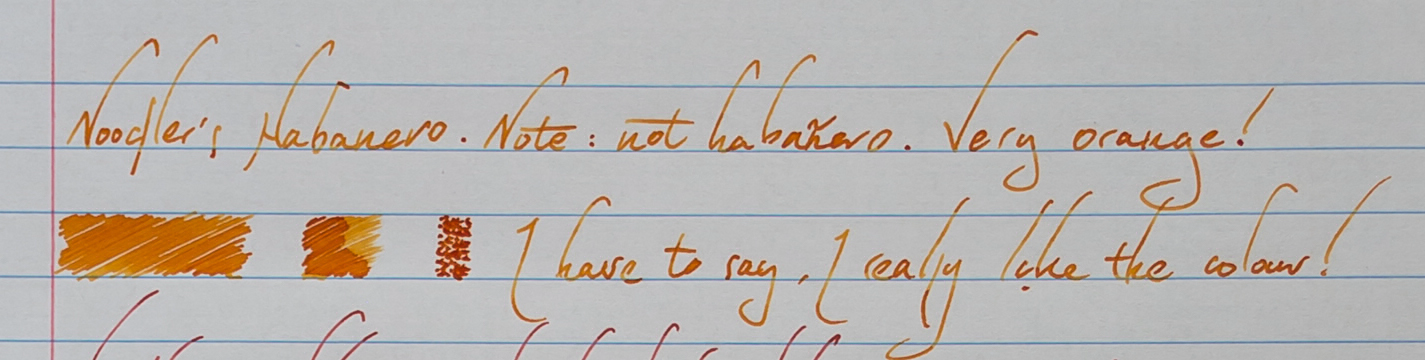 Noodler's Habanero. Note: not habañero. Very orange!
I have to say, I really like the colour!